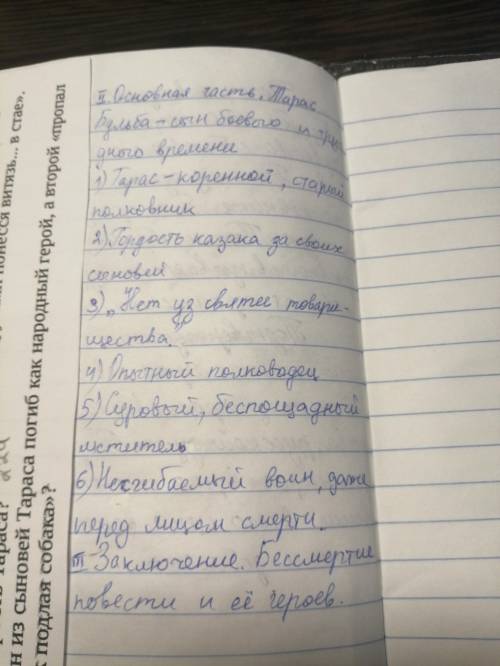 II. Основная часть. Тарас
Бульба - сын боевого и тру-
дного времени
1) Тарас - коренной, старый
полковник
2) Гордость казака за своих
сыновей
3) "Нет уз святее товари-
щества."
4) Опытный полководец
5) Суровый, беспощадный
мститель
6) Несгибаемый воин, даже
перед лицом смерти.
III Заключение. Бессмертие
повести и её героев.
понесся витязь... в стае».
н из сыновей Тараса погиб как народный герой, а второй «пропал
подлая собака»?
Тараса?